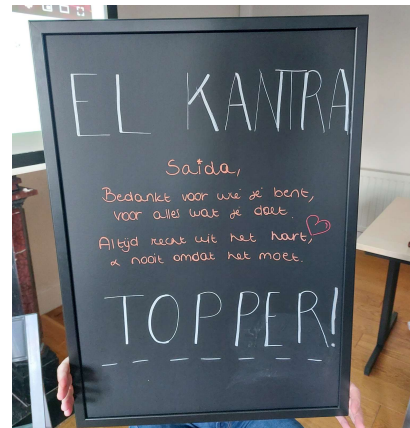 EL KANTRA
Saïda,
Bedankt voor wie je bent,
voor alles wat je doet.
Altijd recht uit het hart,
& nooit omdat het moet.
TOPPER!